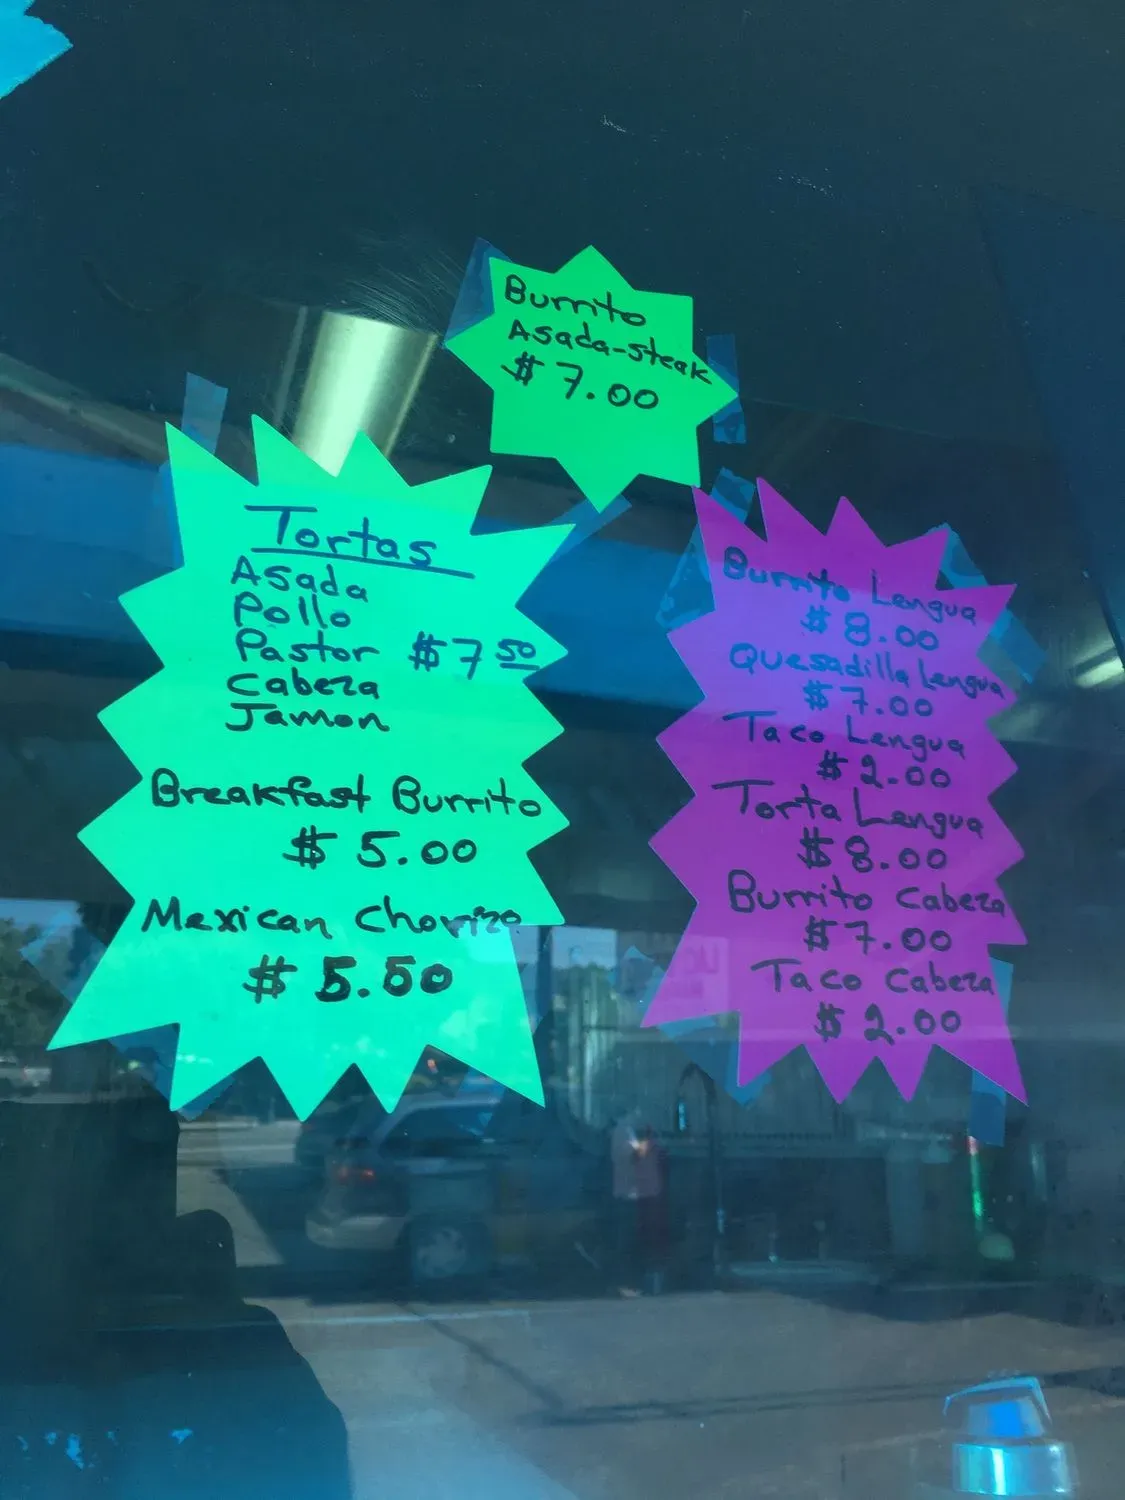 Burrito
Asada-steak
$7.00
Tortas
Asada
Pollo
Pastor $7 50
Cabeza
Jamon
Breakfast Burrito
$ 5.00
Mexican Chorizo
$ 5.50
Burrito Lengua
$8.00
Quesadilla Lengua
$7.00
Taco Lengua
$2.00
Torta Lengua
$8.00
Burrito Cabeza
$7.00
Taco Cabeza
$2.00